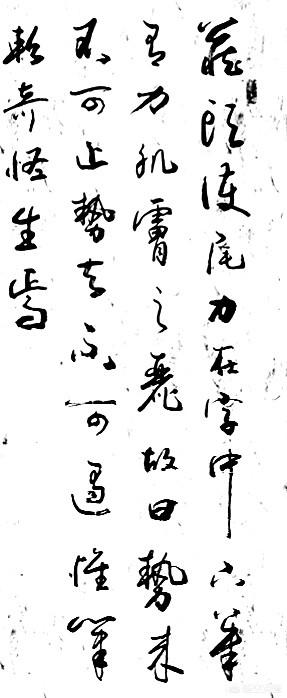 藏頭護尾力在字中下筆
有力肌膚之麗故曰勢來
不可止勢去不可遏惟筆
軟奇怪生焉